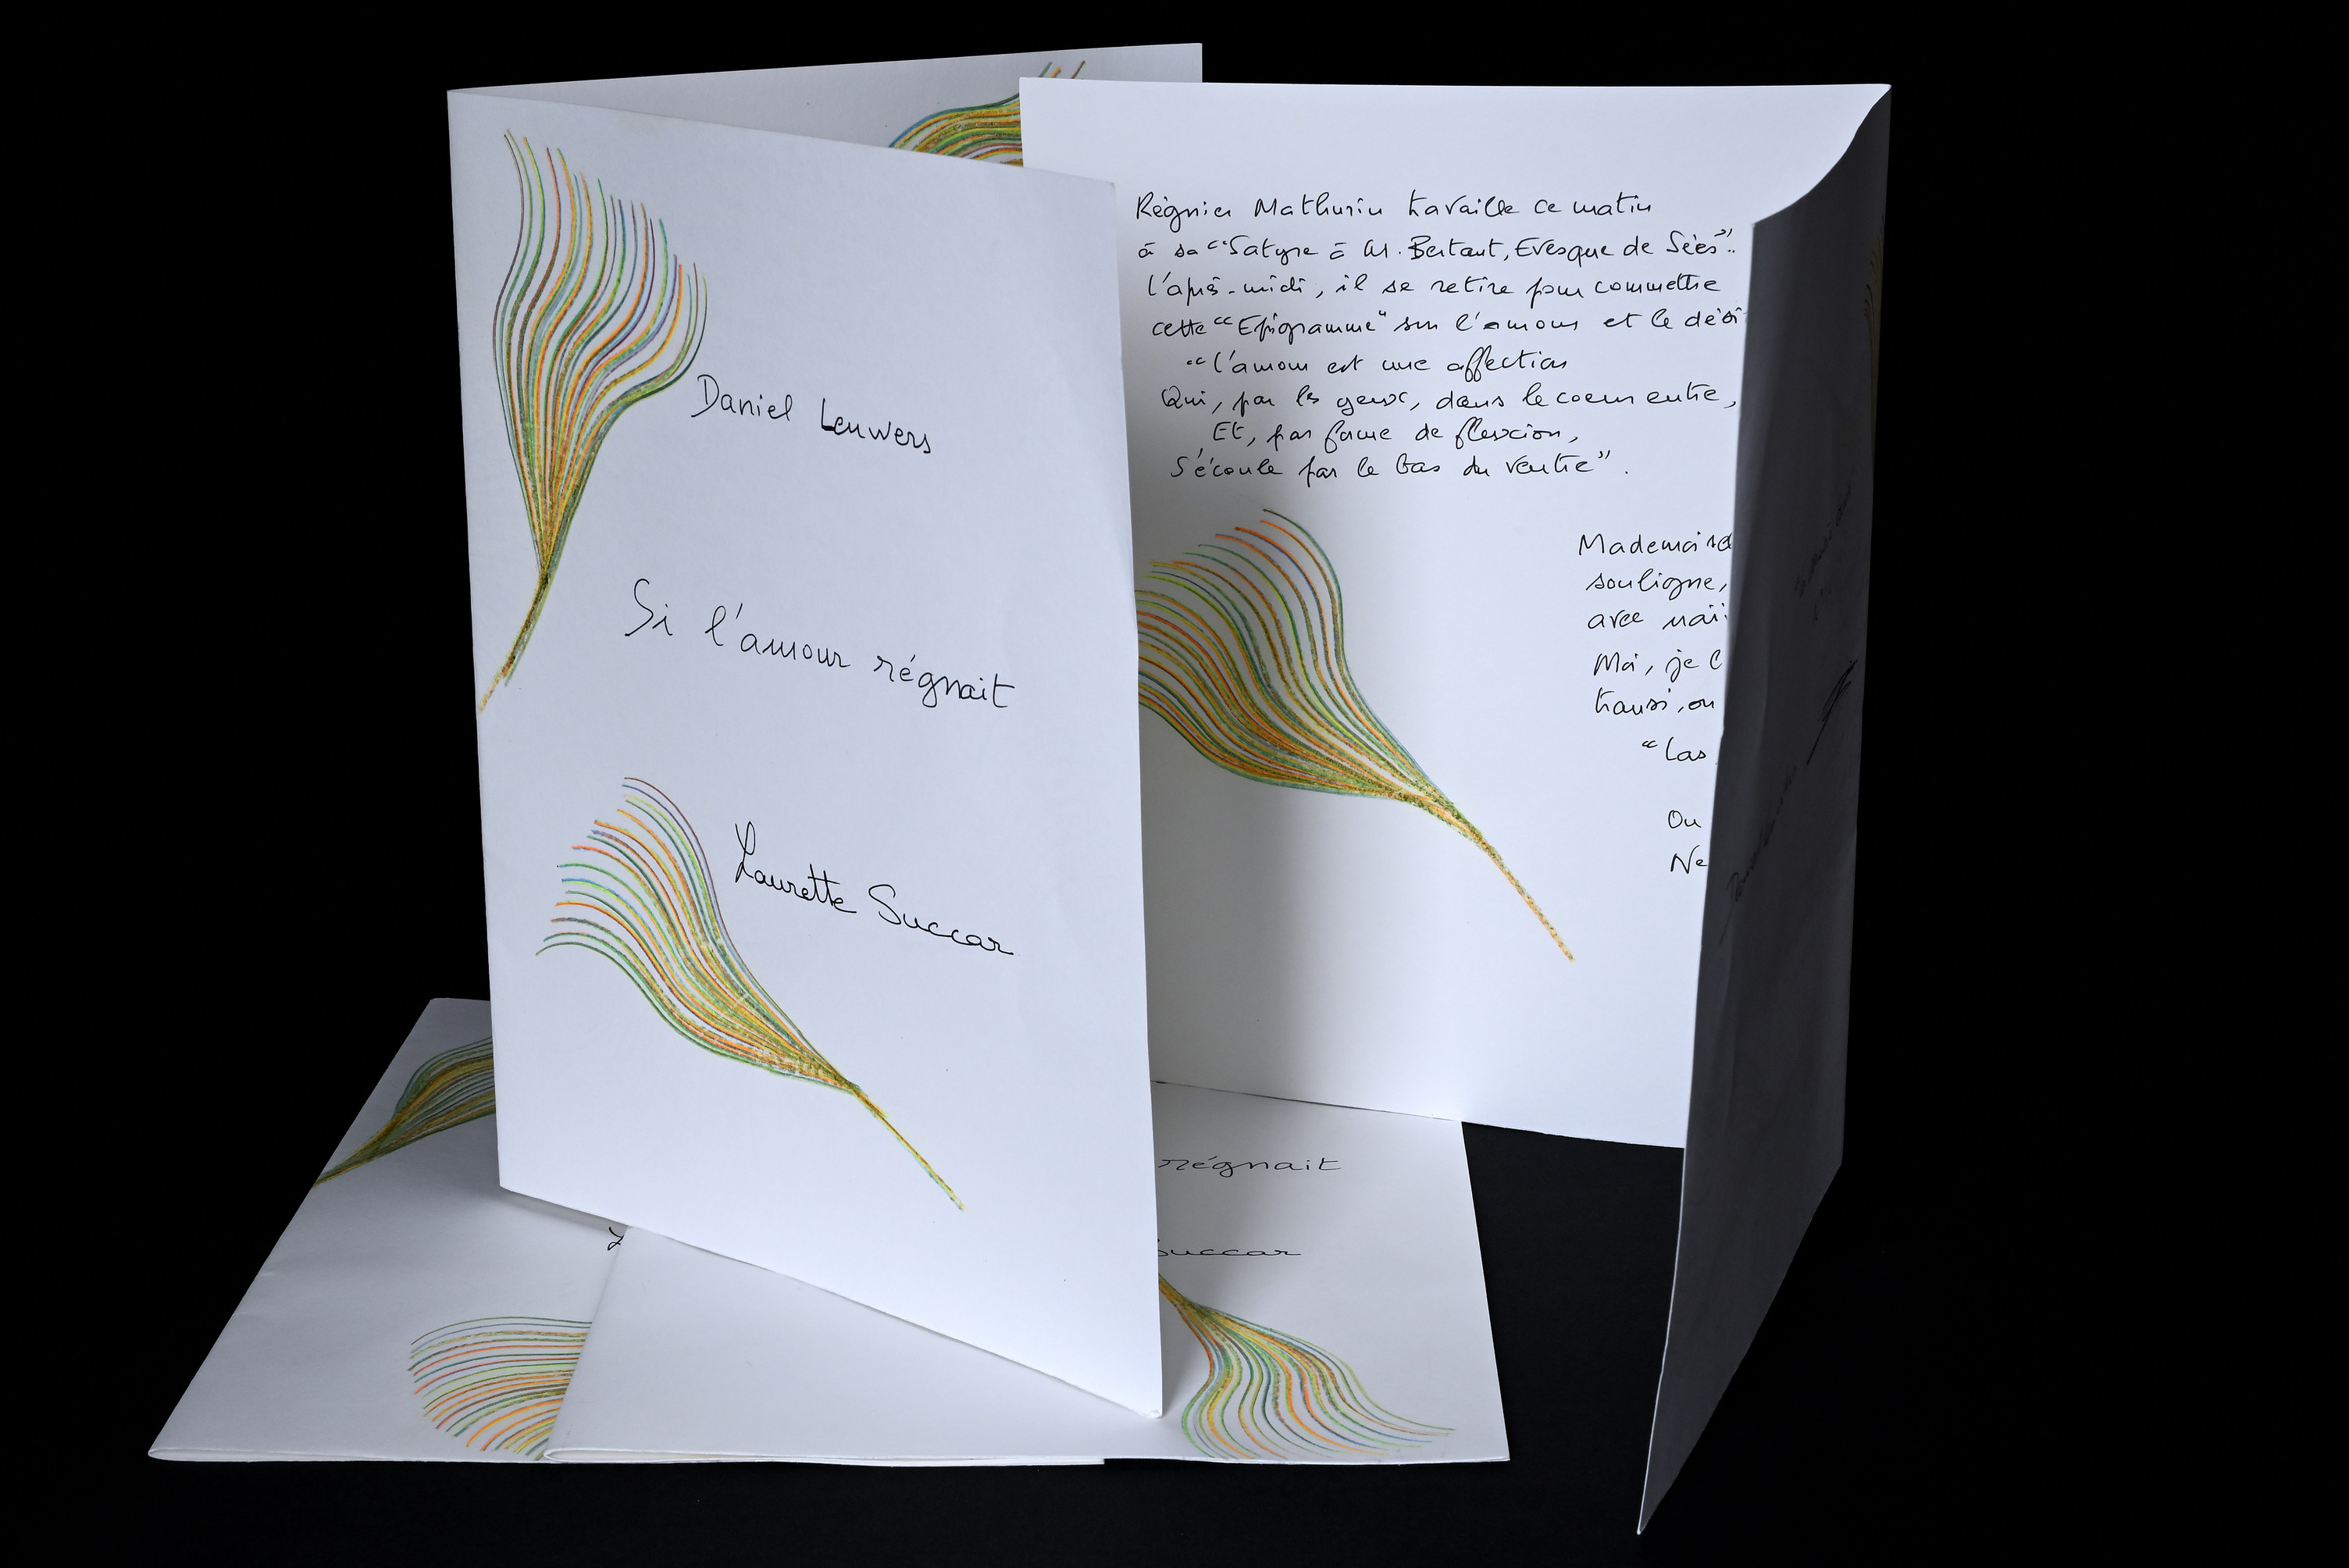 Daniel Leuwers
Si l'amour régnait
Laurette Succar
Régnier Mathurin travaille ce matin
à sa "Satyre à M. Bertaut, Evesque de Sées".
l'après-midi, il se retire pour commettre
cette "Epigramme" sur l'amour et le dési
"l'amour est une affection
Qui, par les yeux, dans le coeur entre,
Et, par forme de fluxion,
S'écoule par le bas du ventre".
Mademoise
souligne,
avec naï
Moi, je l
transi, ou
"Las
Ou
Ne
régnait
Succar